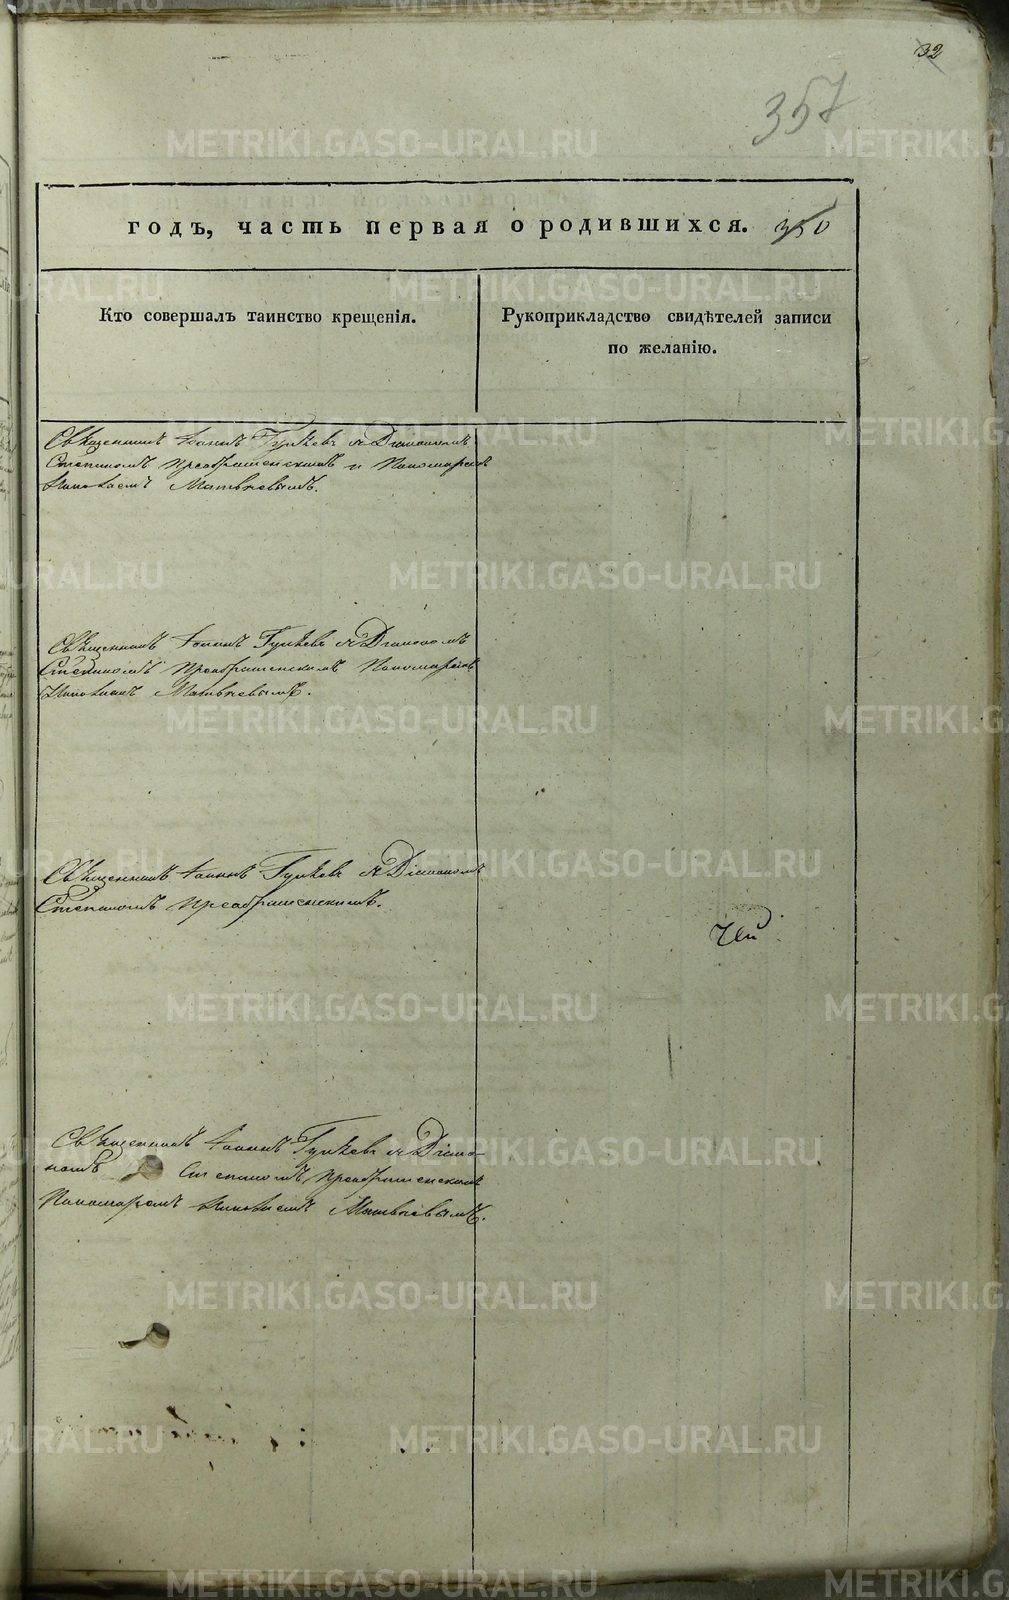 32
357
годъ, часть первая о родившихся. 350
Кто совершалъ таинство крещенія.
Рукоприкладство свидѣтелей записи
по желанію.
Священникъ Іоаннъ Гуляевъ съ Діакономъ
Степаномъ Преображенскимъ и Пономаремъ
Николаемъ Матвѣевымъ.
Священникъ Іоаннъ Гуляевъ съ Діакономъ
Степаномъ Преображенскимъ Пономаремъ
Николаемъ Матвѣевымъ.
Священникъ Іоаннъ Гуляевъ съ Діакономъ
Степаномъ Преображенскимъ.
Священникъ Іоаннъ Гуляевъ съ Діако-
номъ Степаномъ Преображенскимъ
Пономаремъ Николаемъ Матвѣевымъ.
METRIKI.GASO-URAL.RU